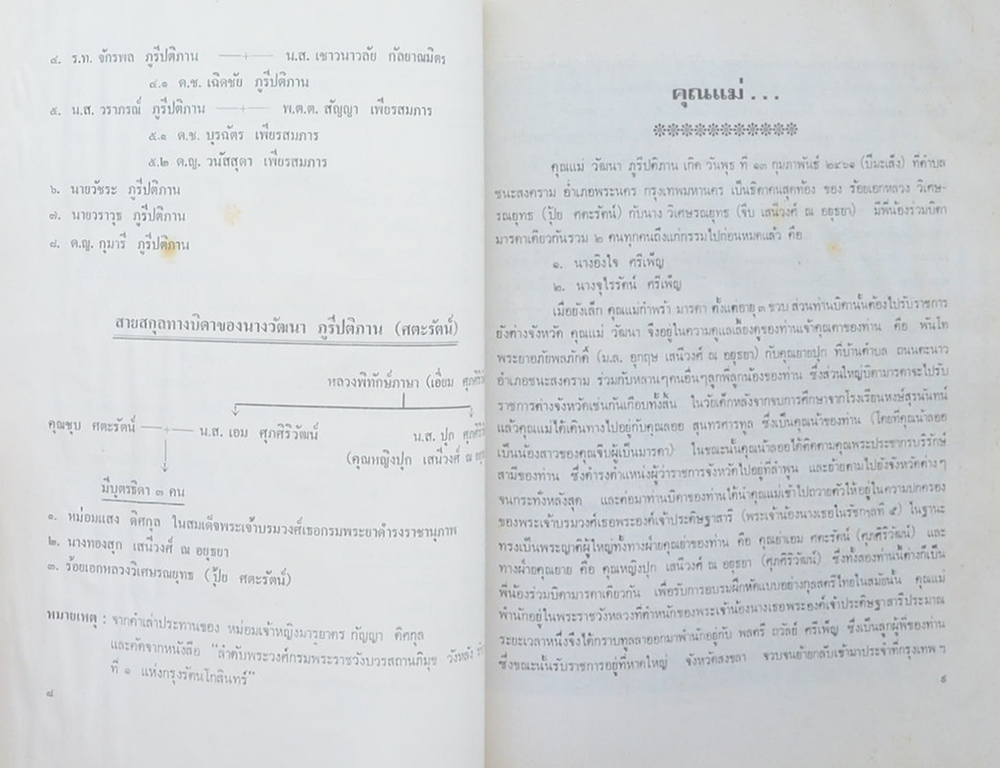 ๔. ร.ท. จักรพล ภูรีปติภาน —+— น.ส. เชาวนาวลัย กัลยาณมิตร
๔.๑ ด.ช. เฉิดชัย ภูรีปติภาน
๕. น.ส. วราภรณ์ ภูรีปติภาน —+— พ.ต.ต. สัญญา เพียรสมภาร
๕.๑ ด.ช. บุรฉัตร เพียรสมภาร
๕.๒ ด.ญ. วนัสสุดา เพียรสมภาร
๖. นายวัชระ ภูรีปติภาน
๗. นายวราวุธ ภูรีปติภาน
๘. ด.ญ. กุมารี ภูรีปติภาน
สายสกุลทางบิดาของนางวัฒนา ภูรีปติภาน (ศตะรัตน์)
หลวงพิทักษ์ภาษา (เอี่ยม
คุณชุบ ศตะรัตน์ —+— น.ส. เอม ศุภศิริวัฒน์
น.ส. ปุก
(คุณหญิงปุก เสนีวงศ์ ณ
มีบุตรธิดา ๓ คน
๑. หม่อมแสง ดิศกุล ในสมเด็จพระเจ้าบรมวงศ์เธอกรมพระยาดำรงราชานุภาพ
๒. นางทองสุก เสนีวงศ์ ณ อยุธยา
๓. ร้อยเอกหลวงวิเศษรณยุทธ (ปุ้ย ศตะรัตน์)
หมายเหตุ : จากคำเล่าประทานของ หม่อมเจ้าหญิงมารยาตร กัญญา ดิศกุล
และคัดจากหนังสือ "ลำดับพระวงศ์กรมพระราชวังบวรสถานภิมุข วังหลัง
ที่ ๑ แห่งกรุงรัตนโกสินทร์"
๘
คุณแม่ . . .
***********
คุณแม่ วัฒนา ภูรีปติภาน เกิด วันพุธ ที่ ๑๓ กุมภาพันธ์ ๒๔๖๑ (ปีมะเส็ง) ที่ตำบล
ชนะสงคราม อำเภอพระนคร กรุงเทพมหานคร เป็นธิดาคนสุดท้อง ของ ร้อยเอกหลวง วิเศษ-
รณยุทธ (ปุ้ย ศตะรัตน์) กับนาง วิเศษรณยุทธ (จีบ เสนีวงศ์ ณ อยุธยา) มีพี่น้องร่วมบิดา
มารดาเดียวกันรวม ๒ คนทุกคนถึงแก่กรรมไปก่อนหมดแล้ว คือ
๑. นางอิงใจ ศรีเพ็ญ
๒. นางจุไรรัตน์ ศรีเพ็ญ
เมื่อยังเล็ก คุณแม่กำพร้า มารดา ตั้งแต่อายุ ๓ ขวบ ส่วนท่านบิดานั้นต้องไปรับราชการ
ยังต่างจังหวัด คุณแม่ วัฒนา จึงอยู่ในความดูแลเลี้ยงดูของท่านเจ้าคุณตาของท่าน คือ พันโท
พระยาอภัยพลภักดิ์ (ม.ล. อุกฤษ เสนีวงศ์ ณ อยุธยา) กับคุณยายปุก ที่บ้านตำบล ถนนตะนาว
อำเภอชนะสงคราม ร่วมกับหลานๆคนอื่นๆลูกพี่ลูกน้องของท่าน ซึ่งส่วนใหญ่บิดามารดาจะไปรับ
ราชการต่างจังหวัดเช่นกันเกือบทั้งสิ้น ในวัยเด็กหลังจากจบการศึกษาจากโรงเรียนหงษ์สุรนันทน์
แล้วคุณแม่ได้เดินทางไปอยู่กับคุณลออ สุนทรศารทูล ซึ่งเป็นคุณน้าของท่าน (โดยที่คุณน้าลออ
เป็นน้องสาวของคุณจีบผู้เป็นมารดา) ในขณะนั้นคุณน้าลออได้ติดตามคุณพระประชากรบริรักษ์
สามีของท่าน ซึ่งดำรงตำแหน่งผู้ว่าราชการจังหวัดไปอยู่ที่ลำพูน และย้ายตามไปยังจังหวัดต่างๆ
จนกระทั่งหลังสุด และต่อมาท่านบิดาของท่านได้นำคุณแม่เข้าไปถวายตัวให้อยู่ในความปกครอง
ของพระเจ้าบรมวงศ์เธอพระองค์เจ้าประดิษฐาสารี (พระเจ้าน้องนางเธอในรัชกาลที่ ๕) ในฐานะ
ทรงเป็นพระญาติผู้ใหญ่ทั้งทางฝ่ายคุณย่าของท่าน คือ คุณย่าเอม ศตะรัตน์ (ศุภศิริวัฒน์) และ
ทางฝ่ายคุณยาย คือ คุณหญิงปุก เสนีวงศ์ ณ อยุธยา (ศุภศิริวัฒน์) ซึ่งทั้งสองท่านนี้ต่างก็เป็น
พี่น้องร่วมบิดามารดาเดียวกัน เพื่อรับการอบรมฝึกหัดแบบอย่างกุลสตรีไทยในสมัยนั้น คุณแม่
พำนักอยู่ในพระราชวังหลวงที่ตำหนักของพระเจ้าน้องนางเธอพระองค์เจ้าประดิษฐาสารีประมาณ
ระยะเวลาหนึ่งจึงได้กราบทูลลาออกมาพำนักอยู่กับ พลตรี ถวัลย์ ศรีเพ็ญ ซึ่งเป็นลูกผู้พี่ของท่าน
ซึ่งขณะนั้นรับราชการอยู่ที่หาดใหญ่ จังหวัดสงขลา จวบจนย้ายกลับเข้ามาประจำที่กรุงเทพ ฯ
๙